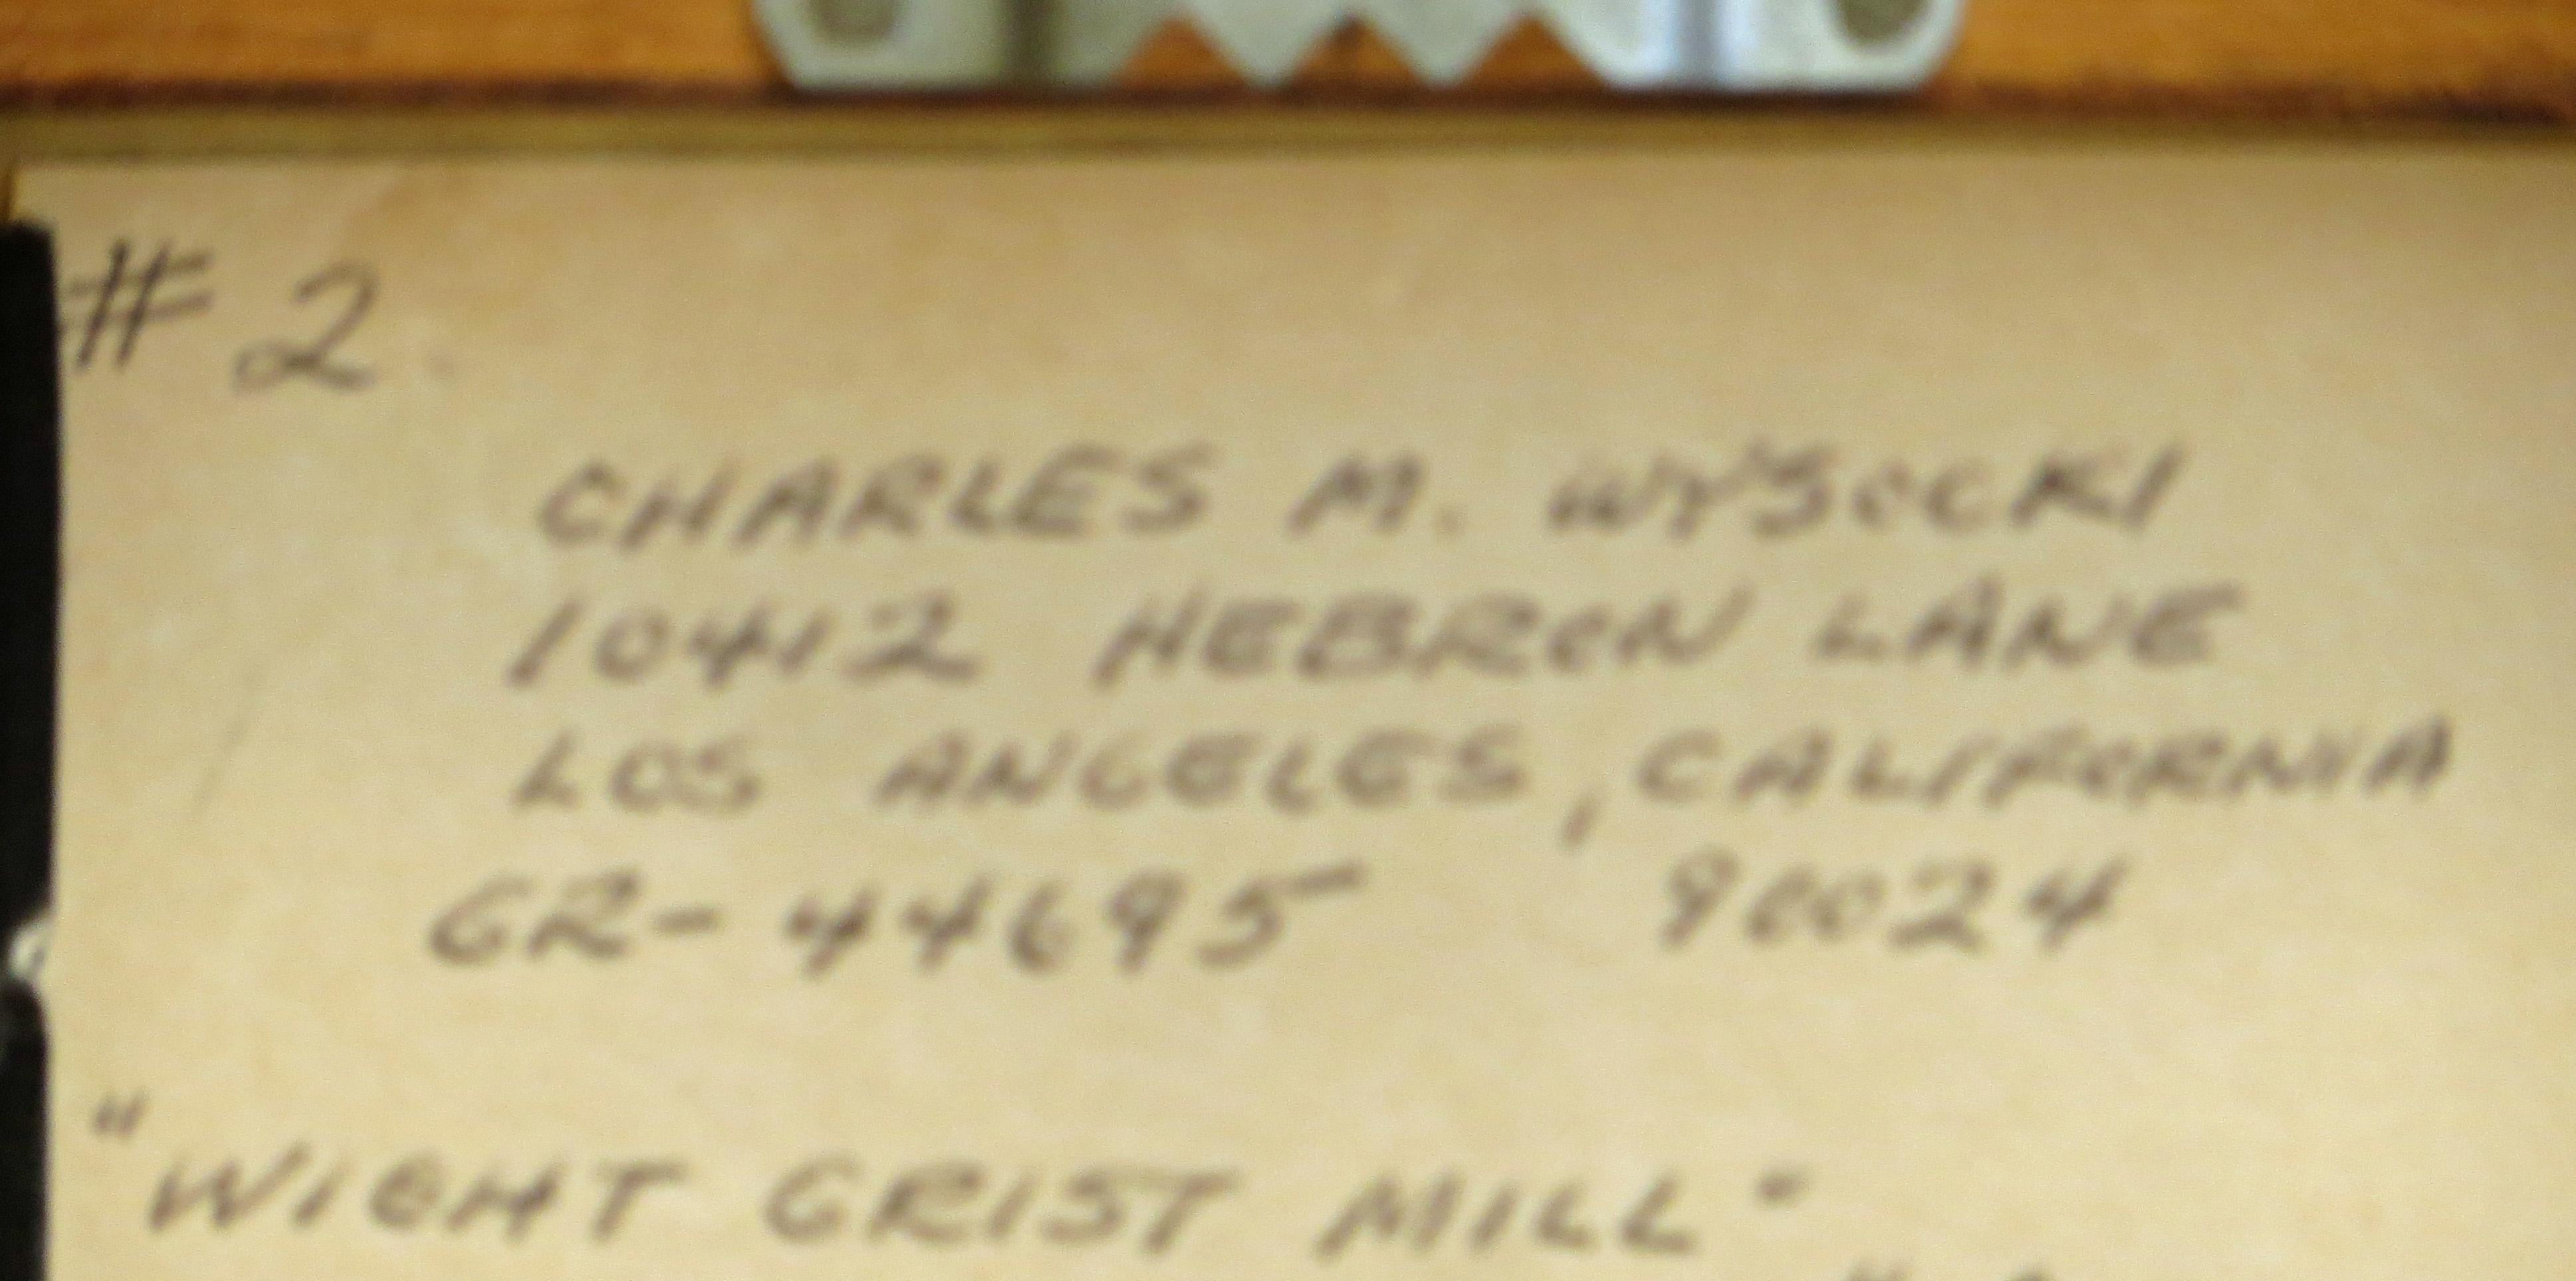 #2
CHARLES M. WYSOCKI
10412 HEBRON LANE
LOS ANGELES, CALIFORNIA
GR-44695 90024
"WIGHT GRIST MILL"